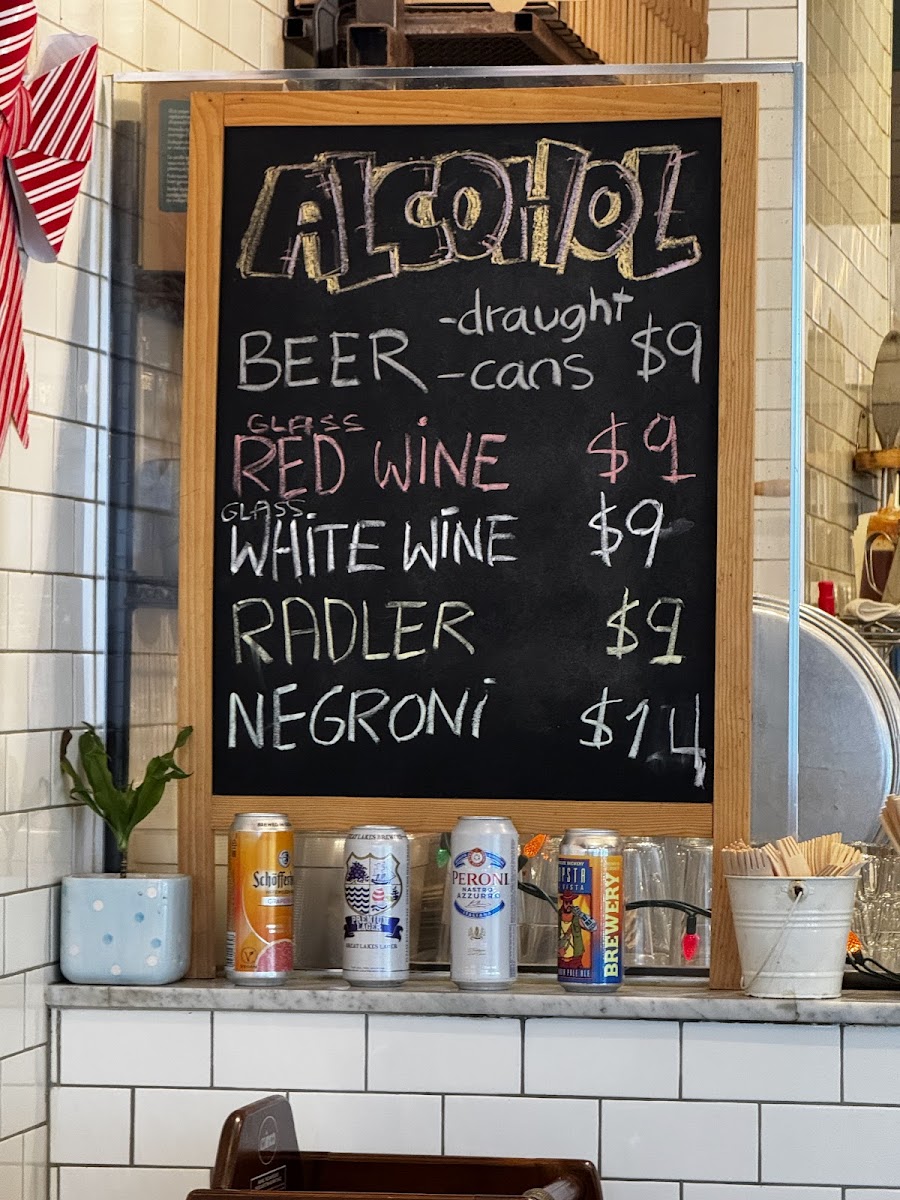 ALCOHOL
BEER -draught $9
-cans
GLASS
RED WINE $9
GLASS
WHITE WINE $9
RADLER $9
NEGRONI $14
Schöffer
GREAT LAKES BREW
PREMIUM
LAGER
GREAT LAKES LAGER
PERONI
NASTRO
AZZURRO
ITALIANO
BREWERY
PALE ALE